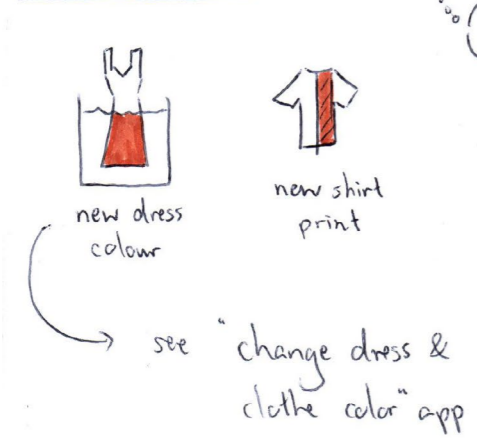 new dress
colour
new shirt
print
see "change dress &
clothe color" app